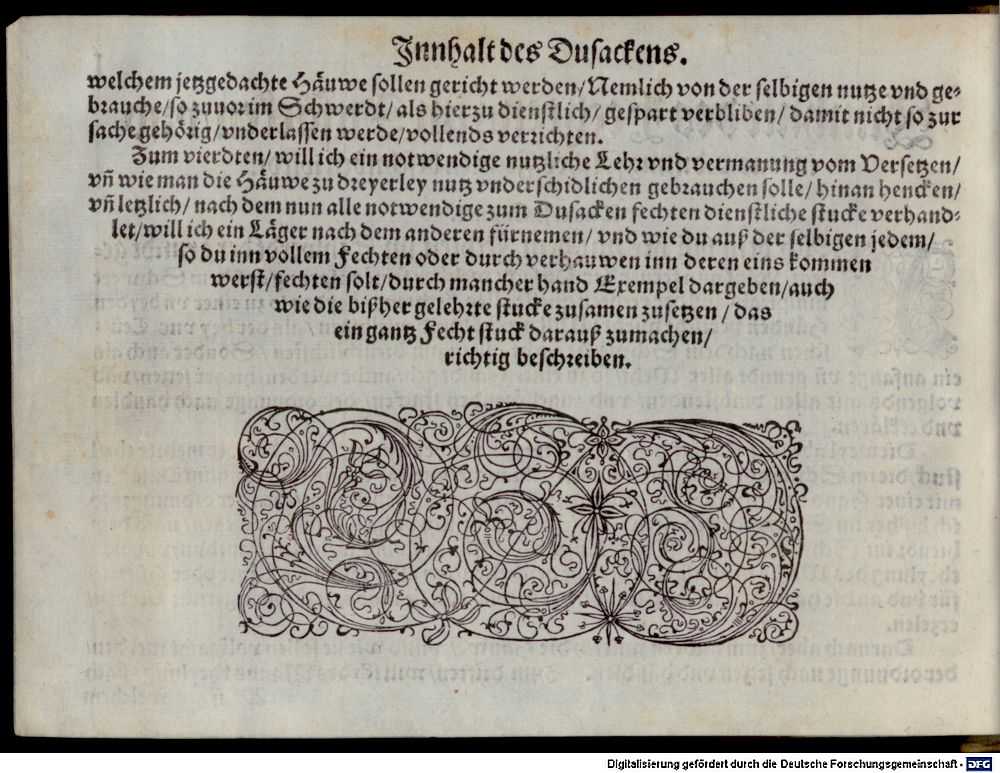 Innhalt des Dusackens.
welchem jetzgedachte Häuwe sollen gericht werden/ Nemlich von der selbigen nutze vnd ge-
brauche/ so zuuor im Schwerdt/ als hierzu dienstlich/ gespart verbliben/ damit nicht so zur
sache gehörig/ vnderlassen werde/ vollends verrichten.
Zum vierdten/ will ich ein notwendige nutzliche Lehr vnd vermanung vom Versetzen/
vñ wie man die Häuwe zu dreyerley nutz vnderschidlichen gebrauchen solle/ hinan hencken/
vñ letzlich/ nach dem nun alle notwendige zum Dusacken fechten dienstliche stucke verhand-
let/ will ich ein Läger nach dem anderen fürnemen/ vnd wie du auß der selbigen jedem/
so du inn vollem Fechten oder durch verhauwen inn deren eins kommen
werst/ fechten solt/ durch mancher hand Exempel dargeben/ auch
wie die bißher gelehrte stucke zusamen zusetzen/ das
ein gantz Fecht stuck darauß zumachen/
richtig beschreiben.
Digitalisierung gefördert durch die Deutsche Forschungsgemeinschaft - DFG